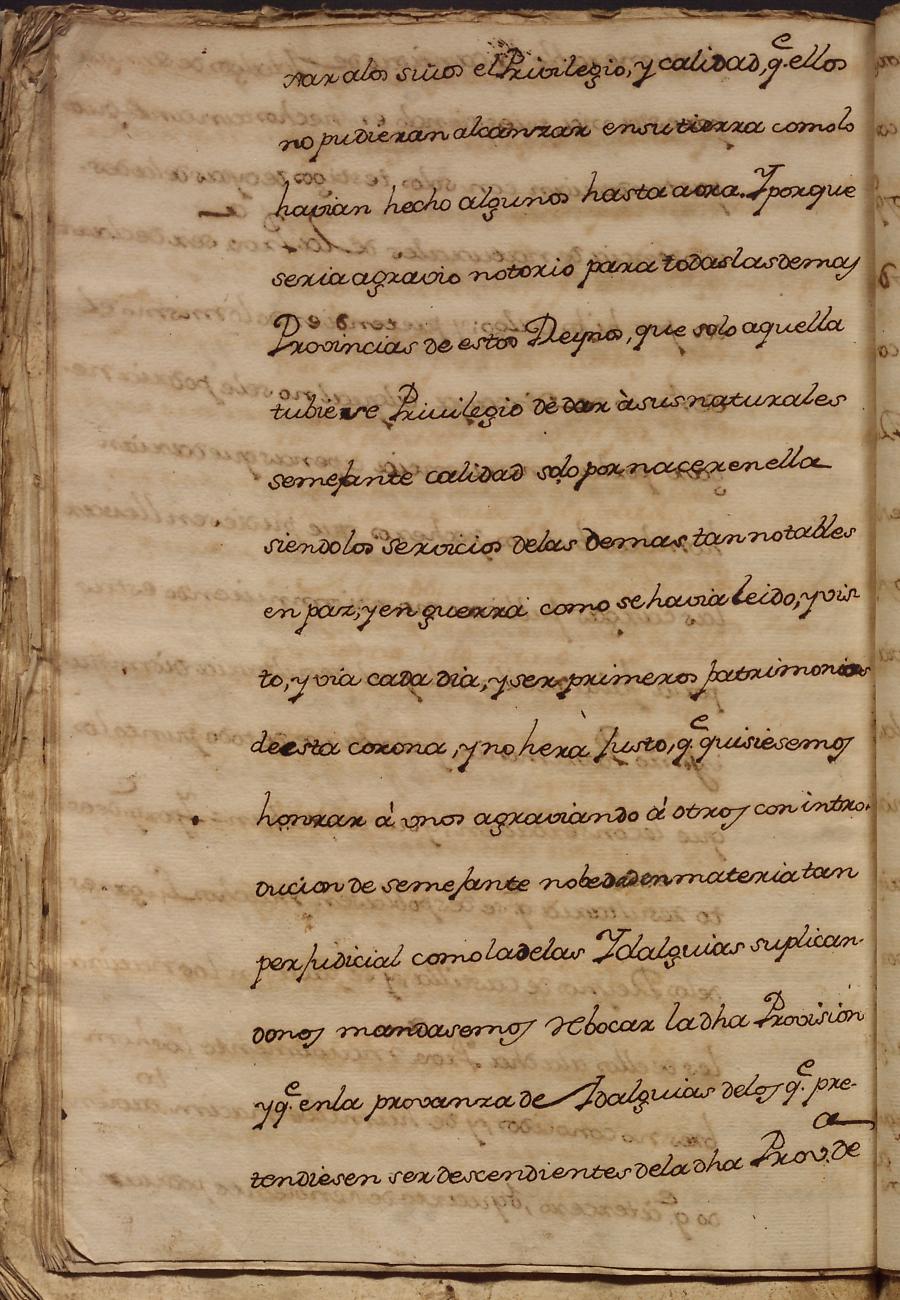 nar a los suios el Privilegio, y calidad, q.e ellos
no pudieran alcanzar en su tierra como lo
havian hecho algunos hasta aora. Y porque
seria agravio notorio para todas las demas
Provincias de estos Reynos, que solo aquella
tubiese Privilegio de dar à sus naturales
semejante calidad solo por nacer en ella
siendo los servicios de las demas tan notables
en paz, y en guerra como se havia leido, y vis-
to, y via cada dia, y ser primeros patrimonios
de esta corona, y no hera justo, q.e quisiesemos
honrar á unos agraviando á otros con intro-
ducion de semejante nobedad en materia tan
perjudicial como la de las Ydalguias suplican-
donos mandasemos rebocar la dha Provisión
y q.e en la provanza de Idalguias de los q.e pre-
tendiesen ser descendientes de la dha Prov.a de